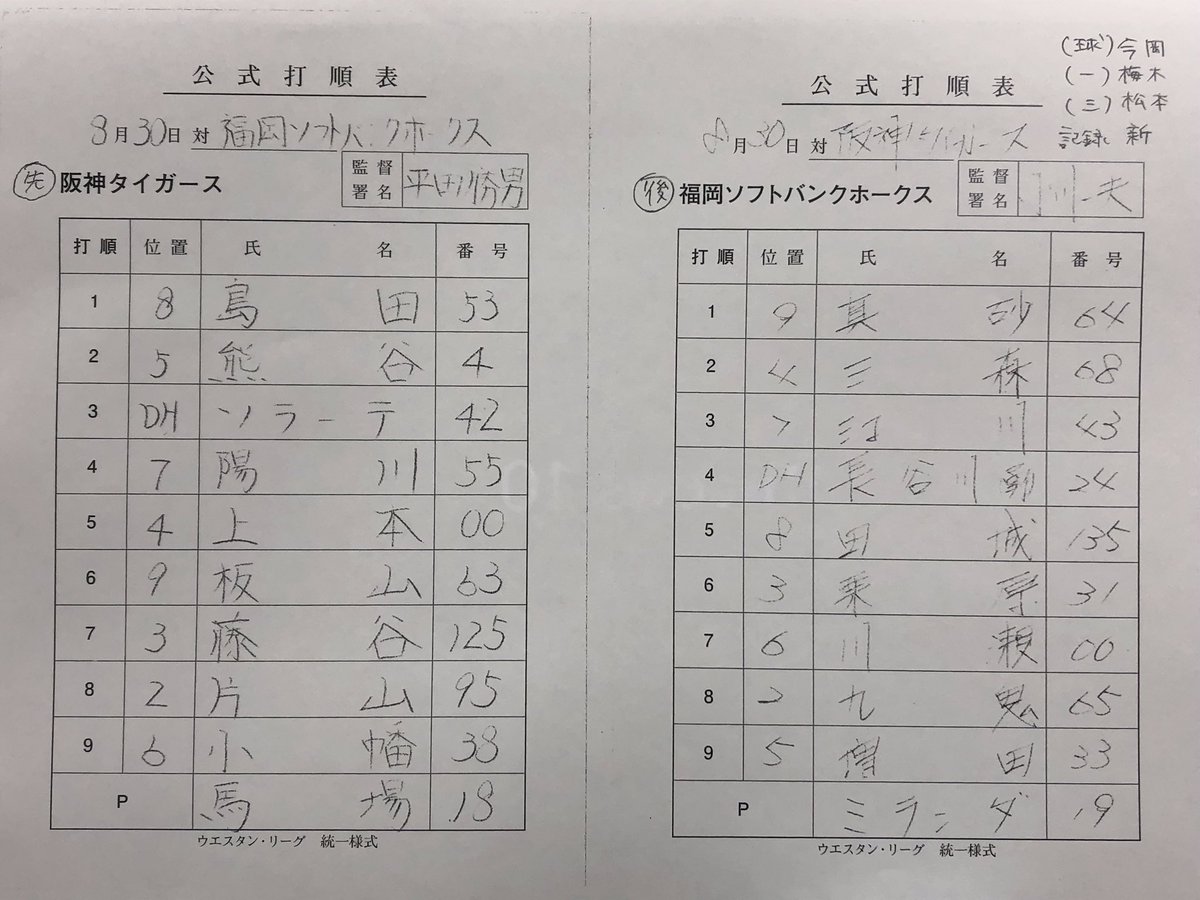 公式打順表
8月30日 対 福岡ソフトバンクホークス
先 阪神タイガース 監督署名 平田勝男
打順 位置 氏名 番号
1 8 島田 53
2 5 熊谷 4
3 DH ソラーテ 42
4 7 陽川 55
5 4 上本 00
6 9 板山 63
7 3 藤谷 125
8 2 片山 95
9 6 小幡 38
P 馬場 18
ウエスタン・リーグ 統一様式
(球)今岡
(一)梅木
(三)松本
記録 新
公式打順表
8月30日 対 阪神タイガース
後 福岡ソフトバンクホークス 監督署名 夫
打順 位置 氏名 番号
1 9 真砂 64
2 4 三森 68
3 7 釜元川 43
4 DH 長谷川勇 24
5 8 田城 135
6 3 栗原 31
7 6 川瀬 00
8 2 九鬼 65
9 5 増田 33
P ミランダ 19
ウエスタン・リーグ 統一様式